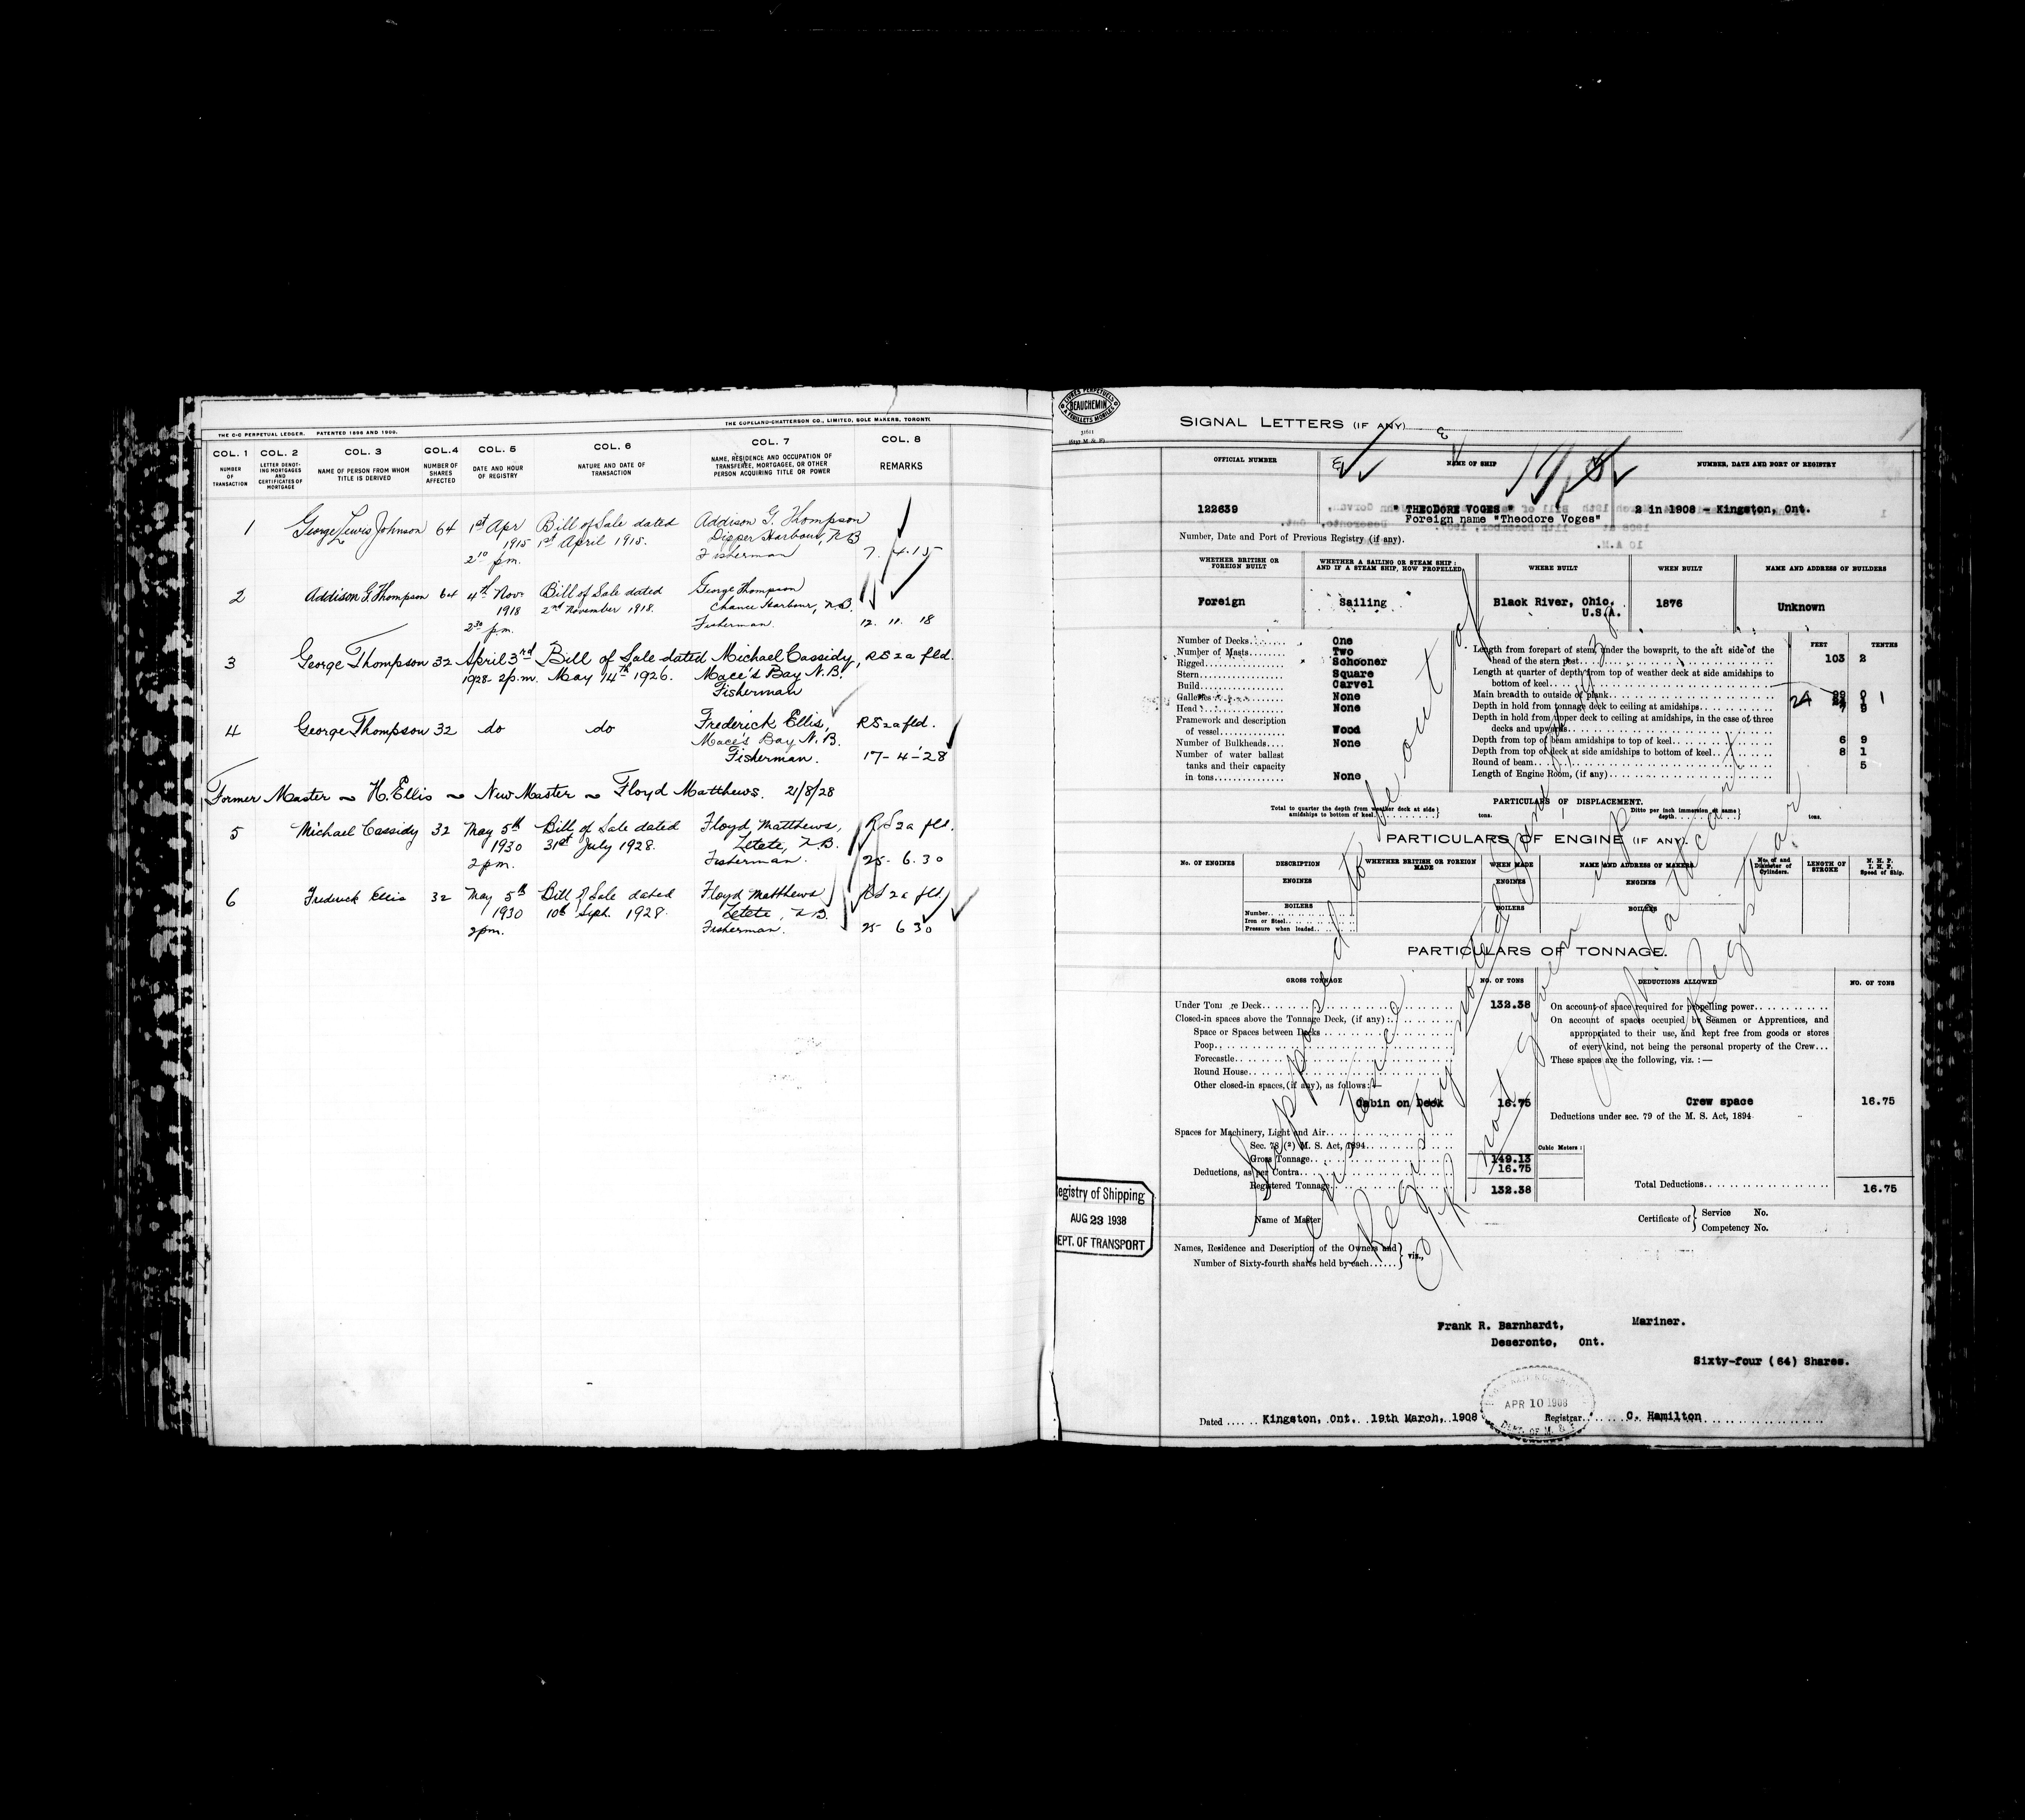 THE C-C PERPETUAL LEDGER. PATENTED 1896 AND 1900.
THE COPELAND-CHATTERSON CO., LIMITED, SOLE MAKERS, TORONTO.
COL. 1 COL. 2 COL. 3 COL. 4 COL. 5 COL. 6 COL. 7 COL. 8
NUMBER OF TRANSACTION
LETTER DENOTING MORTGAGES AND CERTIFICATES OF MORTGAGE
NAME OF PERSON FROM WHOM TITLE IS DERIVED
NUMBER OF SHARES AFFECTED
DATE AND HOUR OF REGISTRY
NATURE AND DATE OF TRANSACTION
NAME, RESIDENCE AND OCCUPATION OF TRANSFEREE, MORTGAGEE, OR OTHER PERSON ACQUIRING TITLE OR POWER
REMARKS
1 George Lewis Johnson 64 1st Apr Bill of Sale dated Addison G. Thompson
1915 1st April 1915. Dipper Harbour, N B
2 10 pm. Fisherman 7. 4.15
2 Addison G. Thompson 64 4th Nov. Bill of Sale dated George Thompson
1918 2nd November 1918. Chance Harbour, N.B.
2 30 pm. Fisherman. 12. 11. 18
3 George Thompson 32 April 3rd Bill of Sale dated Michael Cassidy, RS 2a fld.
1928 2 p.m. May 14th 1926. Mace's Bay N.B.
Fisherman
4 George Thompson 32 do do Frederick Ellis, RS 2a fld.
Mace's Bay N.B.
Fisherman. 17-4-28
Former Master ~ H. Ellis ~ New Master ~ Floyd Matthews. 21/8/28
5 Michael Cassidy 32 May 5th Bill of Sale dated Floyd Matthews, RS 2a fld.
1930 31st July 1928. Letete, N.B.
2 pm. Fisherman. 25. 6. 30
6 Frederick Ellis 32 May 5th Bill of Sale dated Floyd Matthews RS 2a fld.
1930 10th Sept. 1928. Letete, N.B.
2 pm. Fisherman. 25 6 30
BEAUCHEMIN
SIGNAL LETTERS (IF ANY)
OFFICIAL NUMBER NAME OF SHIP NUMBER, DATE AND PORT OF REGISTRY
122639 " THEODORE VOGES " 2 in 1908 - Kingston, Ont.
Foreign name "Theodore Voges"
Number, Date and Port of Previous Registry (if any).
WHETHER BRITISH OR FOREIGN BUILT
WHETHER A SAILING OR STEAM SHIP: AND IF A STEAM SHIP, HOW PROPELLED
WHERE BUILT WHEN BUILT NAME AND ADDRESS OF BUILDERS
Foreign Sailing Black River, Ohio. 1876 Unknown
U.S.A.
Number of Decks One
Number of Masts Two
Rigged Schooner
Stern Square
Build Carvel
Galleries None
Head None
Framework and description
of vessel Wood
Number of Bulkheads None
Number of water ballast
tanks and their capacity
in tons None
FEET TENTHS
Length from forepart of stem, under the bowsprit, to the aft side of the
head of the stern post 103 2
Length at quarter of depth from top of weather deck at side amidships to
bottom of keel
Main breadth to outside of plank 24 1
Depth in hold from tonnage deck to ceiling at amidships 9
Depth in hold from upper deck to ceiling at amidships, in the case of three
decks and upwards
Depth from top of beam amidships to top of keel 6 9
Depth from top of deck at side amidships to bottom of keel 8 1
Round of beam 5
Length of Engine Room, (if any)
PARTICULARS OF DISPLACEMENT.
Total to quarter the depth from weather deck at side amidships to bottom of keel tons. Ditto per inch immersion at same depth tons.
PARTICULARS OF ENGINE (IF ANY).
No. OF ENGINES DESCRIPTION WHETHER BRITISH OR FOREIGN MADE WHEN MADE NAME AND ADDRESS OF MAKERS No. of and Diameter of Cylinders. LENGTH OF STROKE N. H. P. I. H. P. Speed of Ship.
ENGINES ENGINES ENGINES
BOILERS BOILERS BOILERS
Number
Iron or Steel
Pressure when loaded
PARTICULARS OF TONNAGE.
GROSS TONNAGE NO. OF TONS DEDUCTIONS ALLOWED NO. OF TONS
Under Tonnage Deck 132.38
Closed-in spaces above the Tonnage Deck, (if any):
Space or Spaces between Decks
Poop
Forecastle
Round House
Other closed-in spaces, (if any), as follows:
Cabin on Deck 16.75
Spaces for Machinery, Light and Air
Sec. 78 (2) M. S. Act, 1894
Gross Tonnage 149.13
Deductions, as per Contra 16.75
Registered Tonnage 132.38
Cubic Meters:
On account of space required for propelling power
On account of spaces occupied by Seamen or Apprentices, and
appropriated to their use, and kept free from goods or stores
of every kind, not being the personal property of the Crew
These spaces are the following, viz.:—
Crew space 16.75
Deductions under sec. 79 of the M. S. Act, 1894
Total Deductions 16.75
Supposed to be out of
existence
Registry noted closed
C/R not given up
Registrar
Registry of Shipping
AUG 23 1938
DEPT. OF TRANSPORT
Name of Master
Certificate of { Service No.
Competency No.
Names, Residence and Description of the Owners and
Number of Sixty-fourth shares held by each } viz.,
Frank R. Barnhardt, Mariner.
Deseronto, Ont.
Sixty-four (64) Shares.
APR 10 1908
DEPT. OF M. & F.
Dated Kingston, Ont. 19th March, 1908 Registrar C. Hamilton